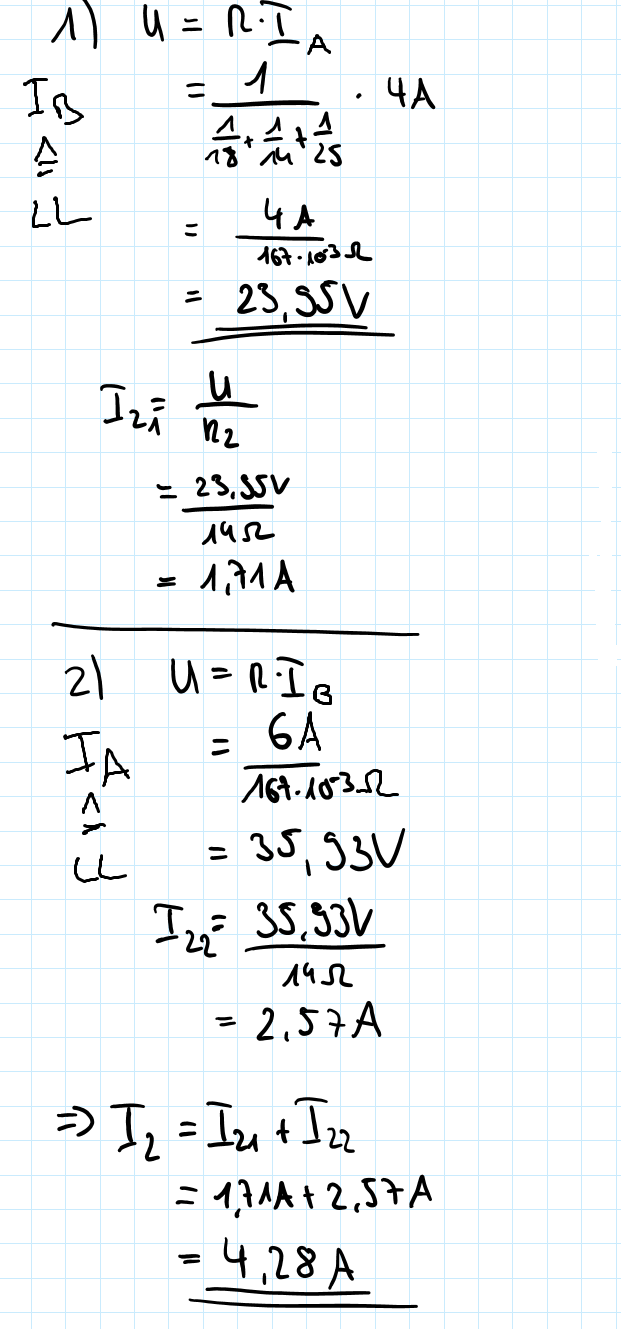 1) U = R · I_A
I_B ≙ LL
= 1 / (1/18 + 1/14 + 1/25) · 4A
= 4A / (167·10^-3 Ω)
= 23,95V
I_21 = U / R_2
= 23,95V / 14Ω
= 1,71A
2) U = R · I_B
I_A ≙ LL
= 6A / (167·10^-3 Ω)
= 35,93V
I_22 = 35,93V / 14Ω
= 2,57A
=> I_2 = I_21 + I_22
= 1,71A + 2,57A
= 4,28A